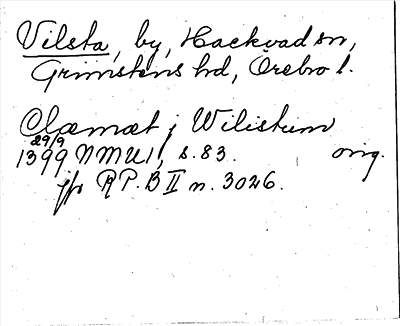 Vilsta, by, Hackvad sn,
Grimstens hd, Örebro l.
Clæmæt j Wilistum
29/9
1399 NMU1, s. 83. orig.
jfr RP. B II n. 3026.